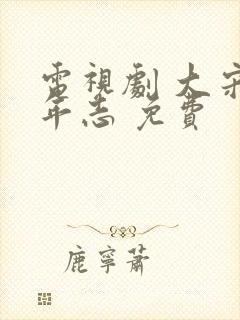 電視劇 大宋
年志 免費
鹿寧蕭